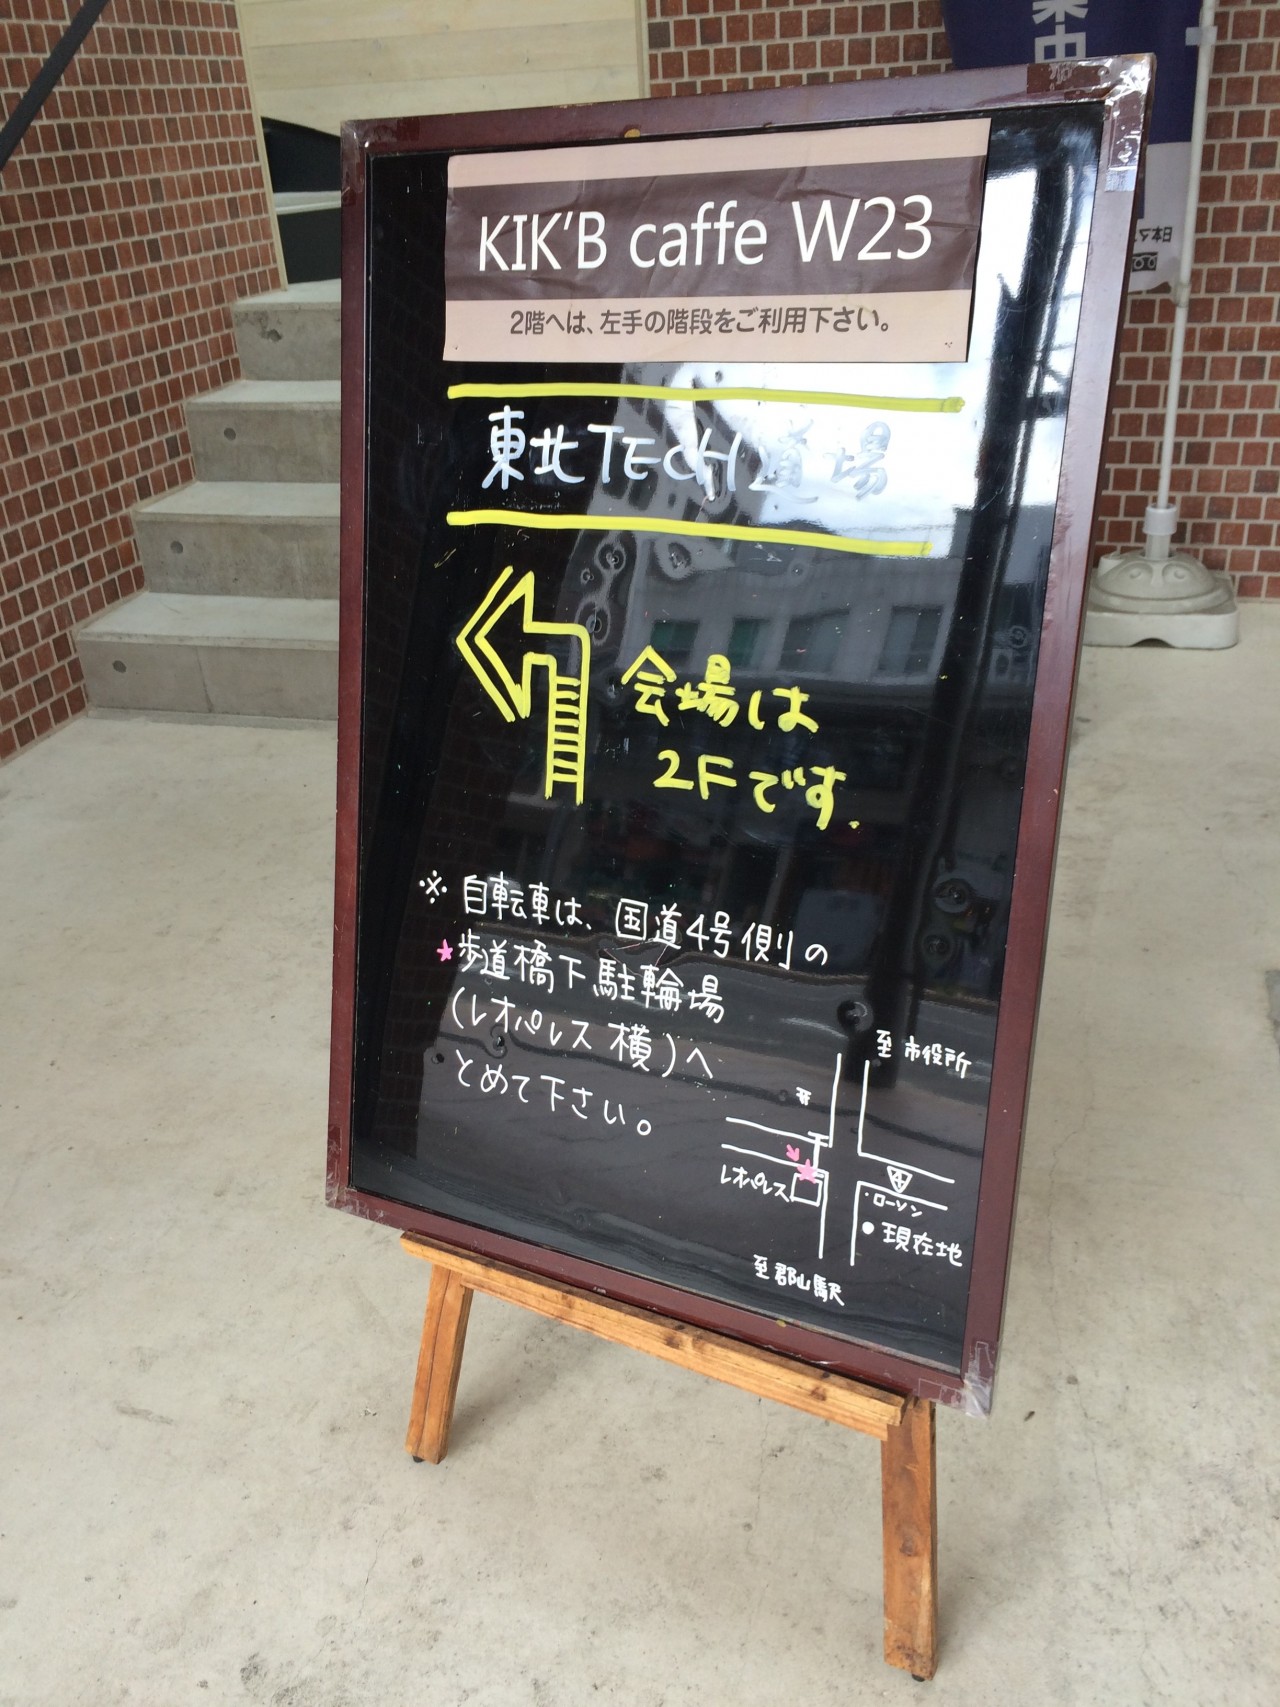 集中
日本
KIK'B caffe W23
2階へは、左手の階段をご利用下さい。
東北TECH道場
会場は
2Fです.
※ 自転車は、国道4号側の
★歩道橋下駐輪場
(レオパレス横)へ
とめて下さい。
至 市役所
レオパレス
ローソン
現在地
至 郡山駅